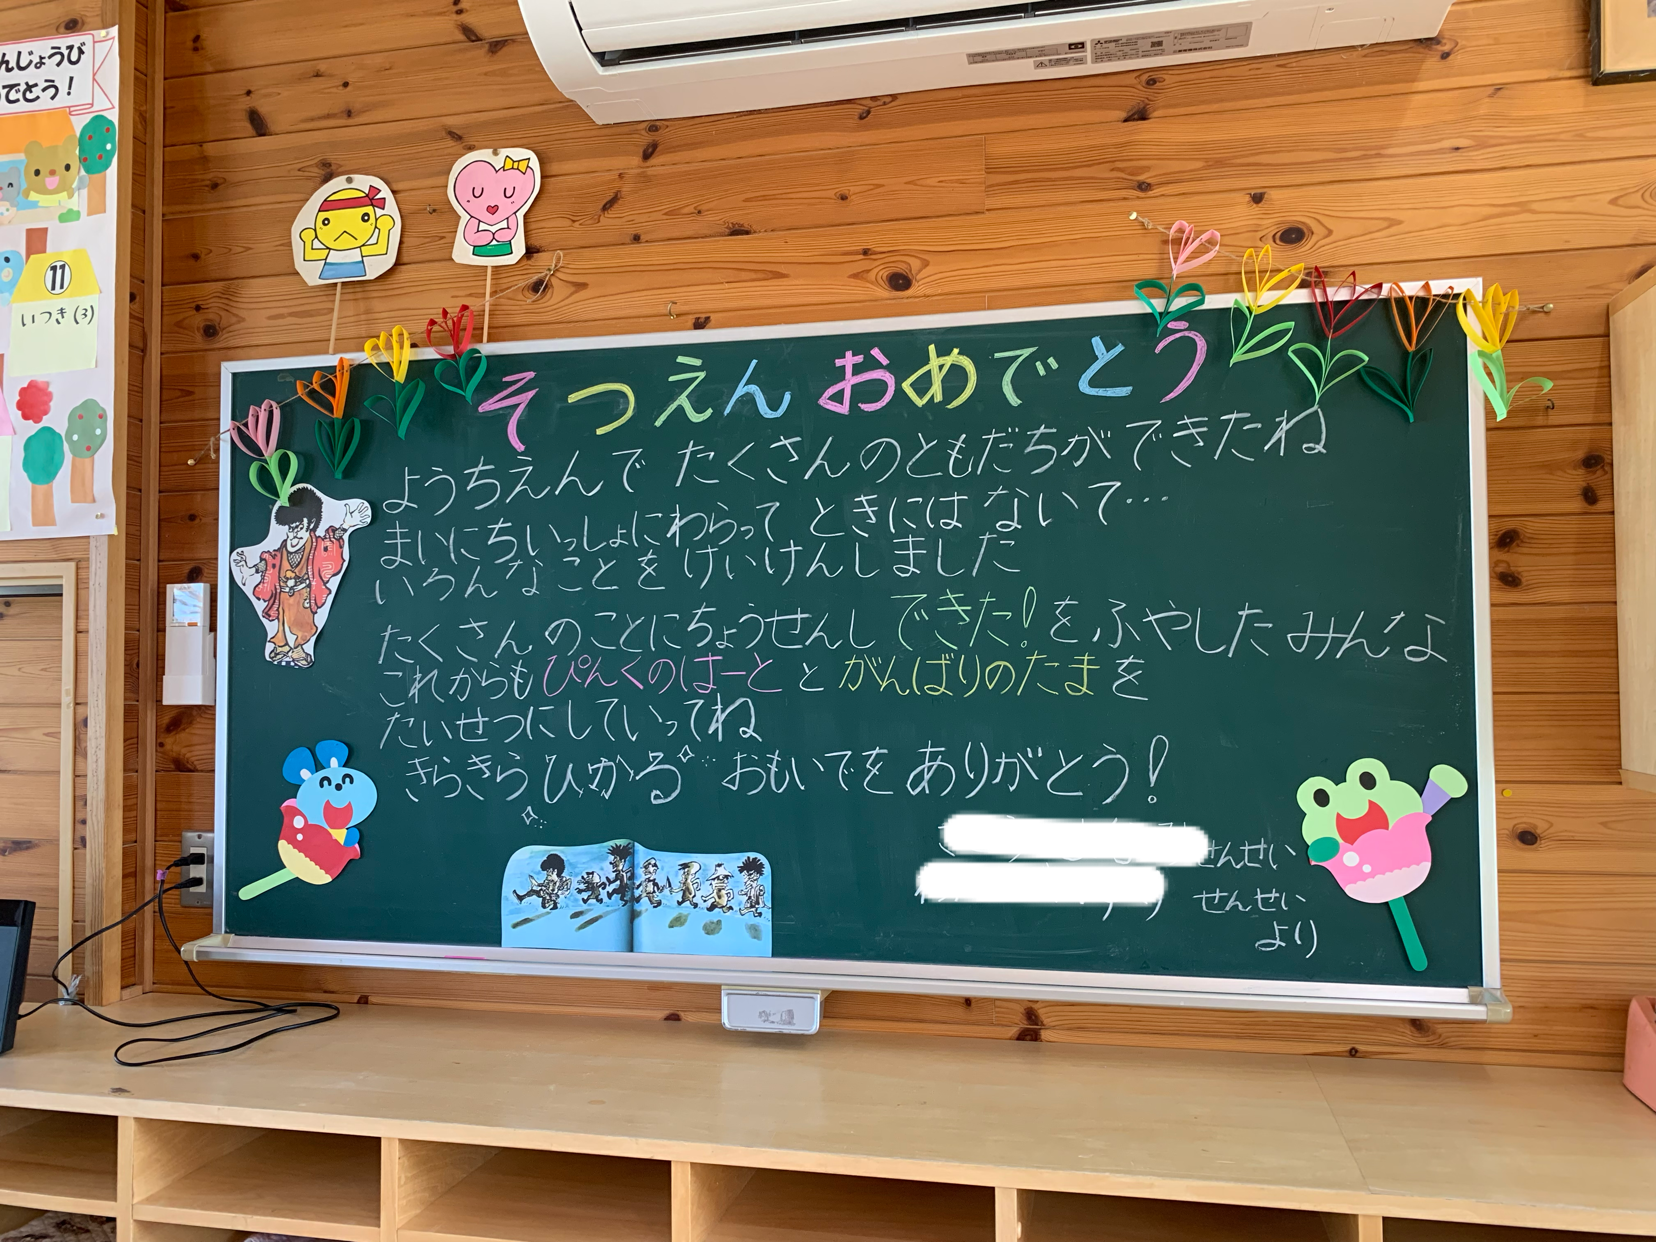 んじょうび
でとう！
11
いつき(3)
そつえんおめでとう
ようちえんで たくさんのともだちができたね
まいにちいっしょにわらって ときにはないて…
いろんなことをけいけんしました
たくさんのことにちょうせんしできた!をふやしたみんな
これからもぴんくのはーととがんばりのたまを
たいせつにしていってね
きらきらひかる おもいでをありがとう!
せんせい
せんせい
より